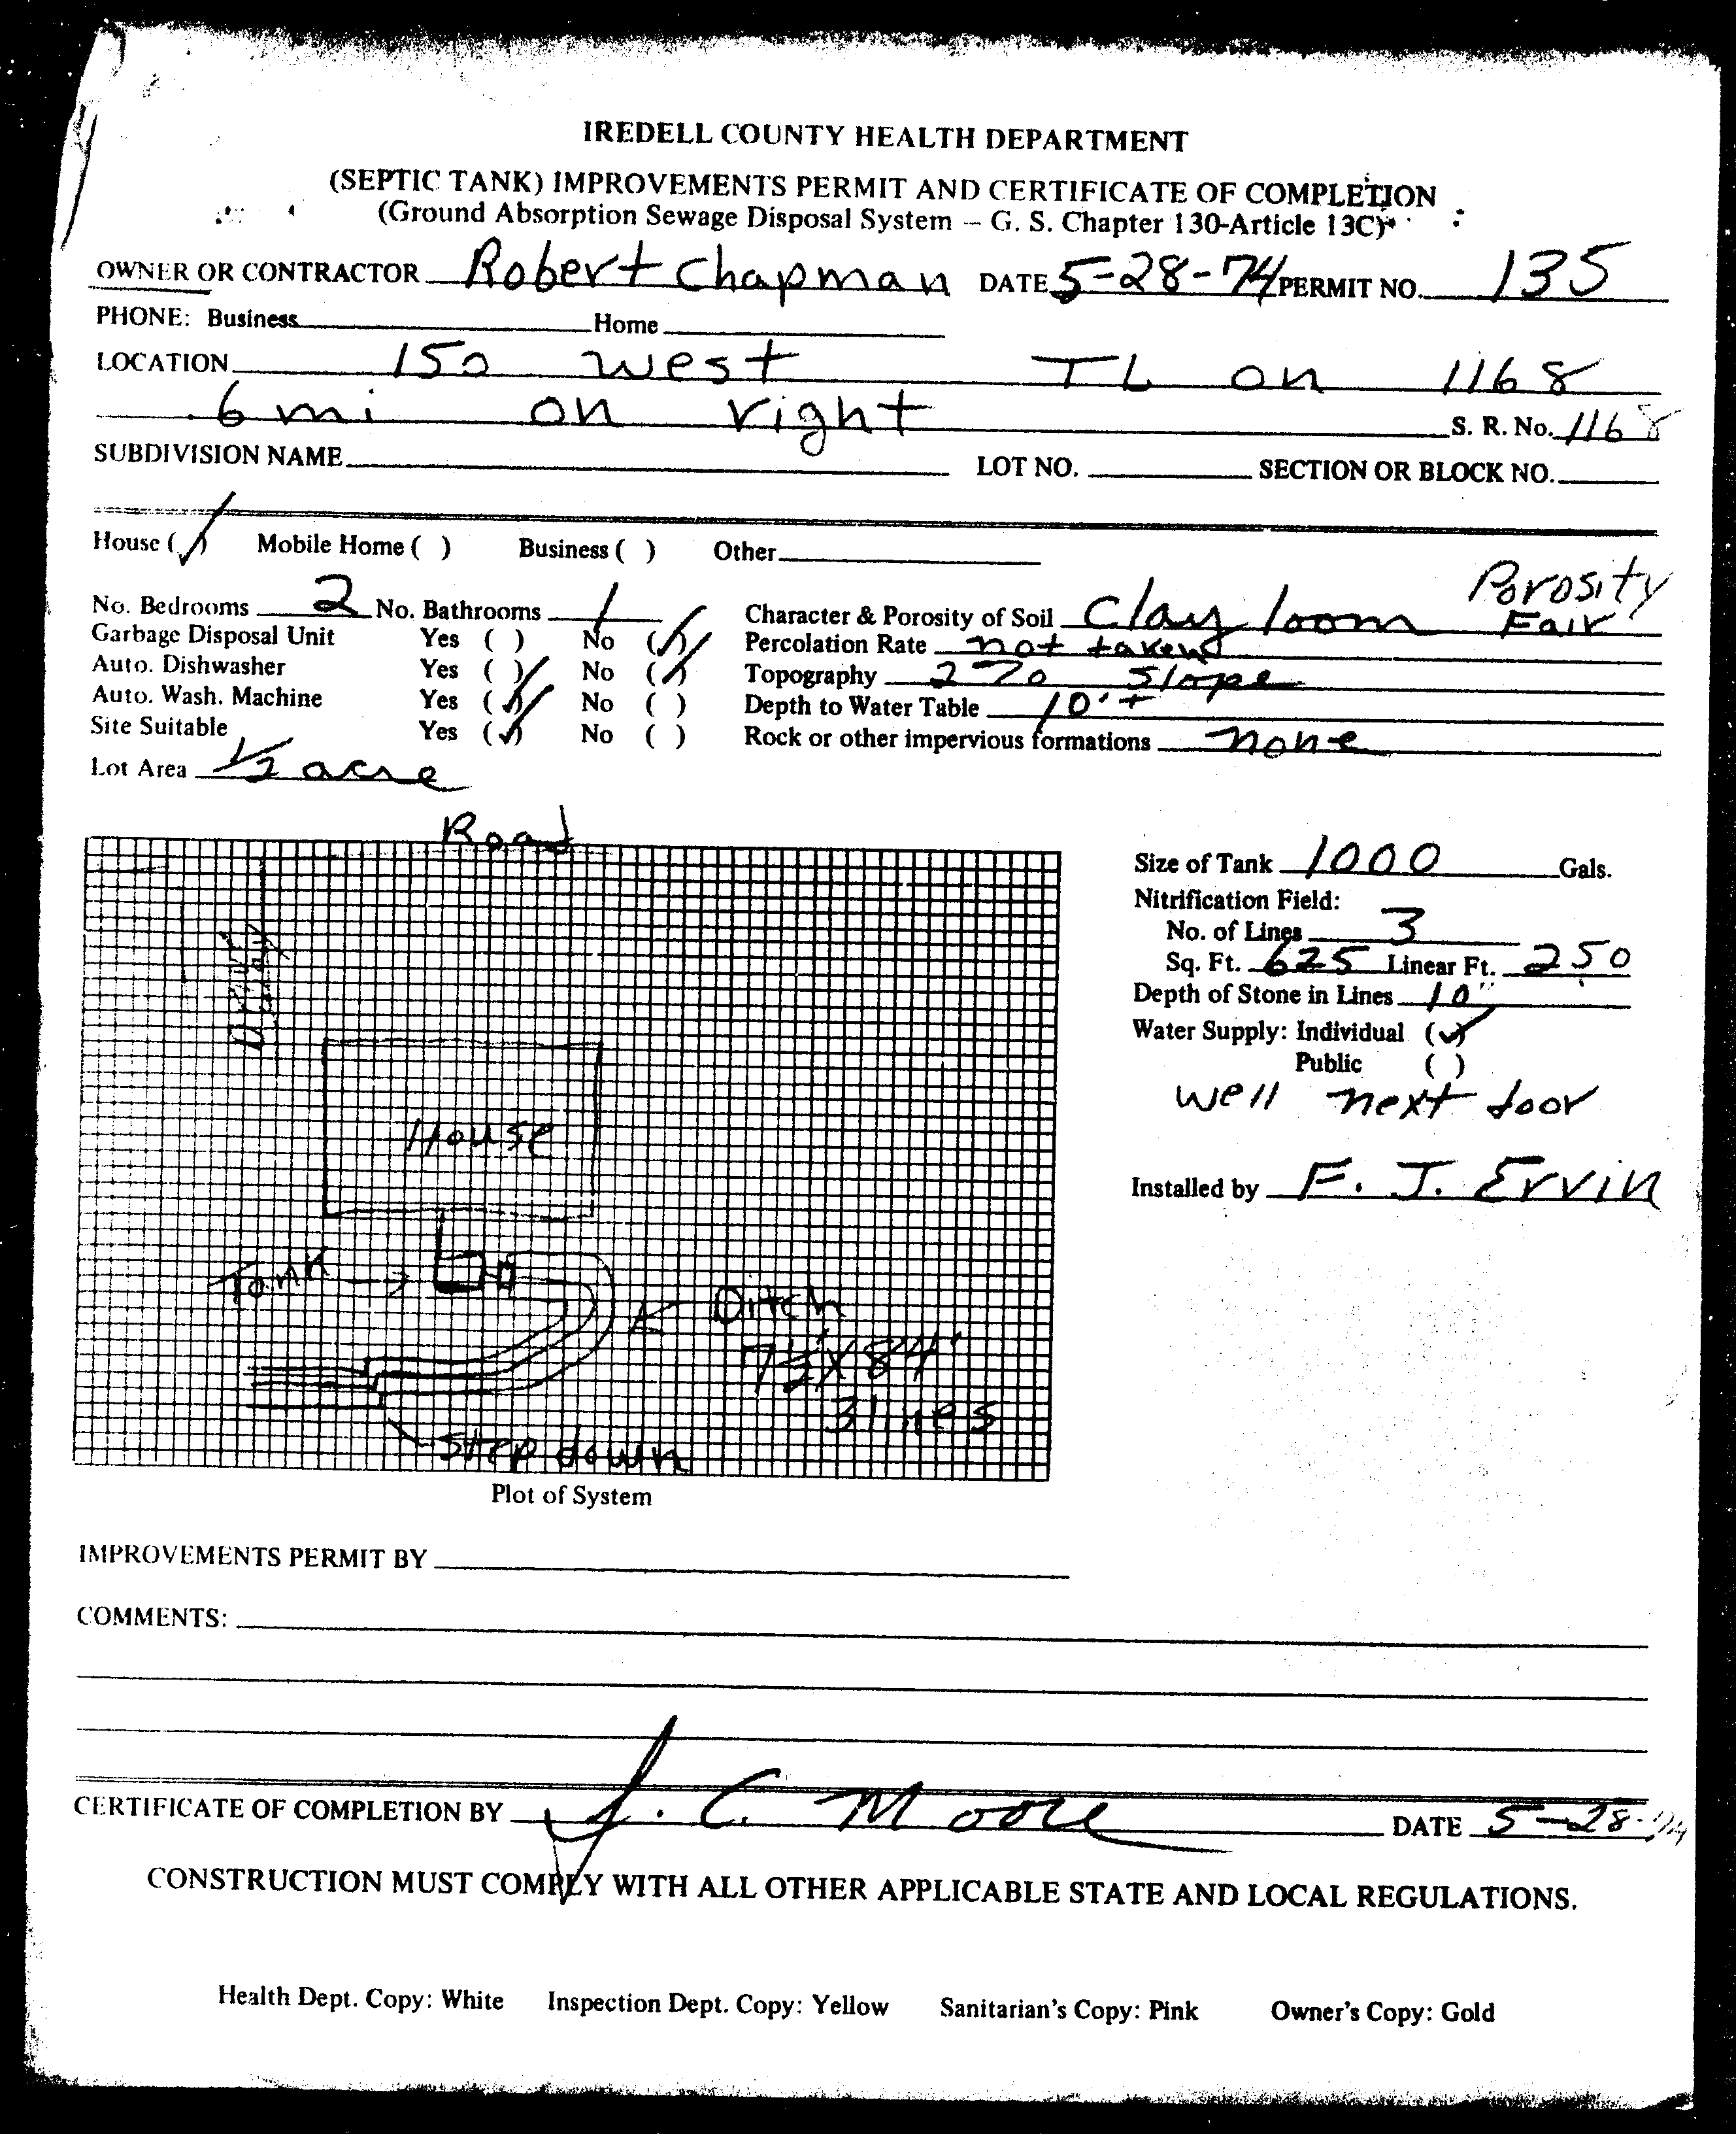 IREDELL COUNTY HEALTH DEPARTMENT
(SEPTIC TANK) IMPROVEMENTS PERMIT AND CERTIFICATE OF COMPLETION
(Ground Absorption Sewage Disposal System — G. S. Chapter 130-Article 13C)
OWNER OR CONTRACTOR Robert Chapman DATE 5-28-74 PERMIT NO. 135
PHONE: Business Home
LOCATION 150 west TL on 1168
.6 mi on right S. R. No. 1168
SUBDIVISION NAME LOT NO. SECTION OR BLOCK NO.
House (✓) Mobile Home ( ) Business ( ) Other
No. Bedrooms 2 No. Bathrooms 1 Character & Porosity of Soil Clay loom Porosity Fair
Garbage Disposal Unit Yes ( ) No (✓) Percolation Rate not taken
Auto. Dishwasher Yes ( ) No (✓) Topography 2% slope
Auto. Wash. Machine Yes (✓) No ( ) Depth to Water Table 10'+
Site Suitable Yes (✓) No ( ) Rock or other impervious formations none
Lot Area ½ acre
Road
Drive way
House
Tank
Ditch
7½' X 84'
3 lines
Step down
Plot of System
Size of Tank 1000 Gals.
Nitrification Field:
No. of Lines 3
Sq. Ft. 625 Linear Ft. 250
Depth of Stone in Lines 10"
Water Supply: Individual (✓)
Public ( )
well next door
Installed by F. J. Ervin
IMPROVEMENTS PERMIT BY
COMMENTS:
CERTIFICATE OF COMPLETION BY J. C. Moore DATE 5-28-74
CONSTRUCTION MUST COMPLY WITH ALL OTHER APPLICABLE STATE AND LOCAL REGULATIONS.
Health Dept. Copy: White Inspection Dept. Copy: Yellow Sanitarian's Copy: Pink Owner's Copy: Gold